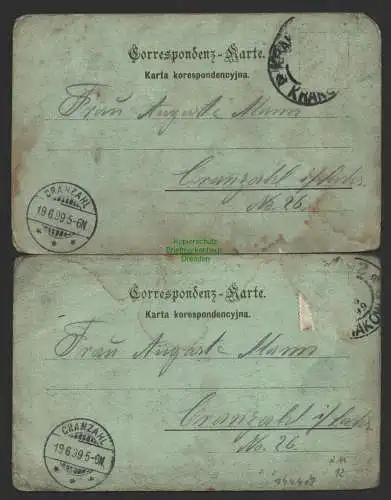 Correspondenz-Karte.
Karta korespondencyjna.
KRAK
Frau Auguste Mann
Cranzahl i/Sachs.
No. 26.
CRANZAHL
19.6.99.5-6N.
Kopierschutz
Briefmarkenhaus
Dresden
Correspondenz-Karte.
Karta korespondencyjna.
AKÓ
Frau Auguste Mann
Cranzahl i/Sachs.
No. 26.
CRANZAHL
19.6.99.5-6N.
12